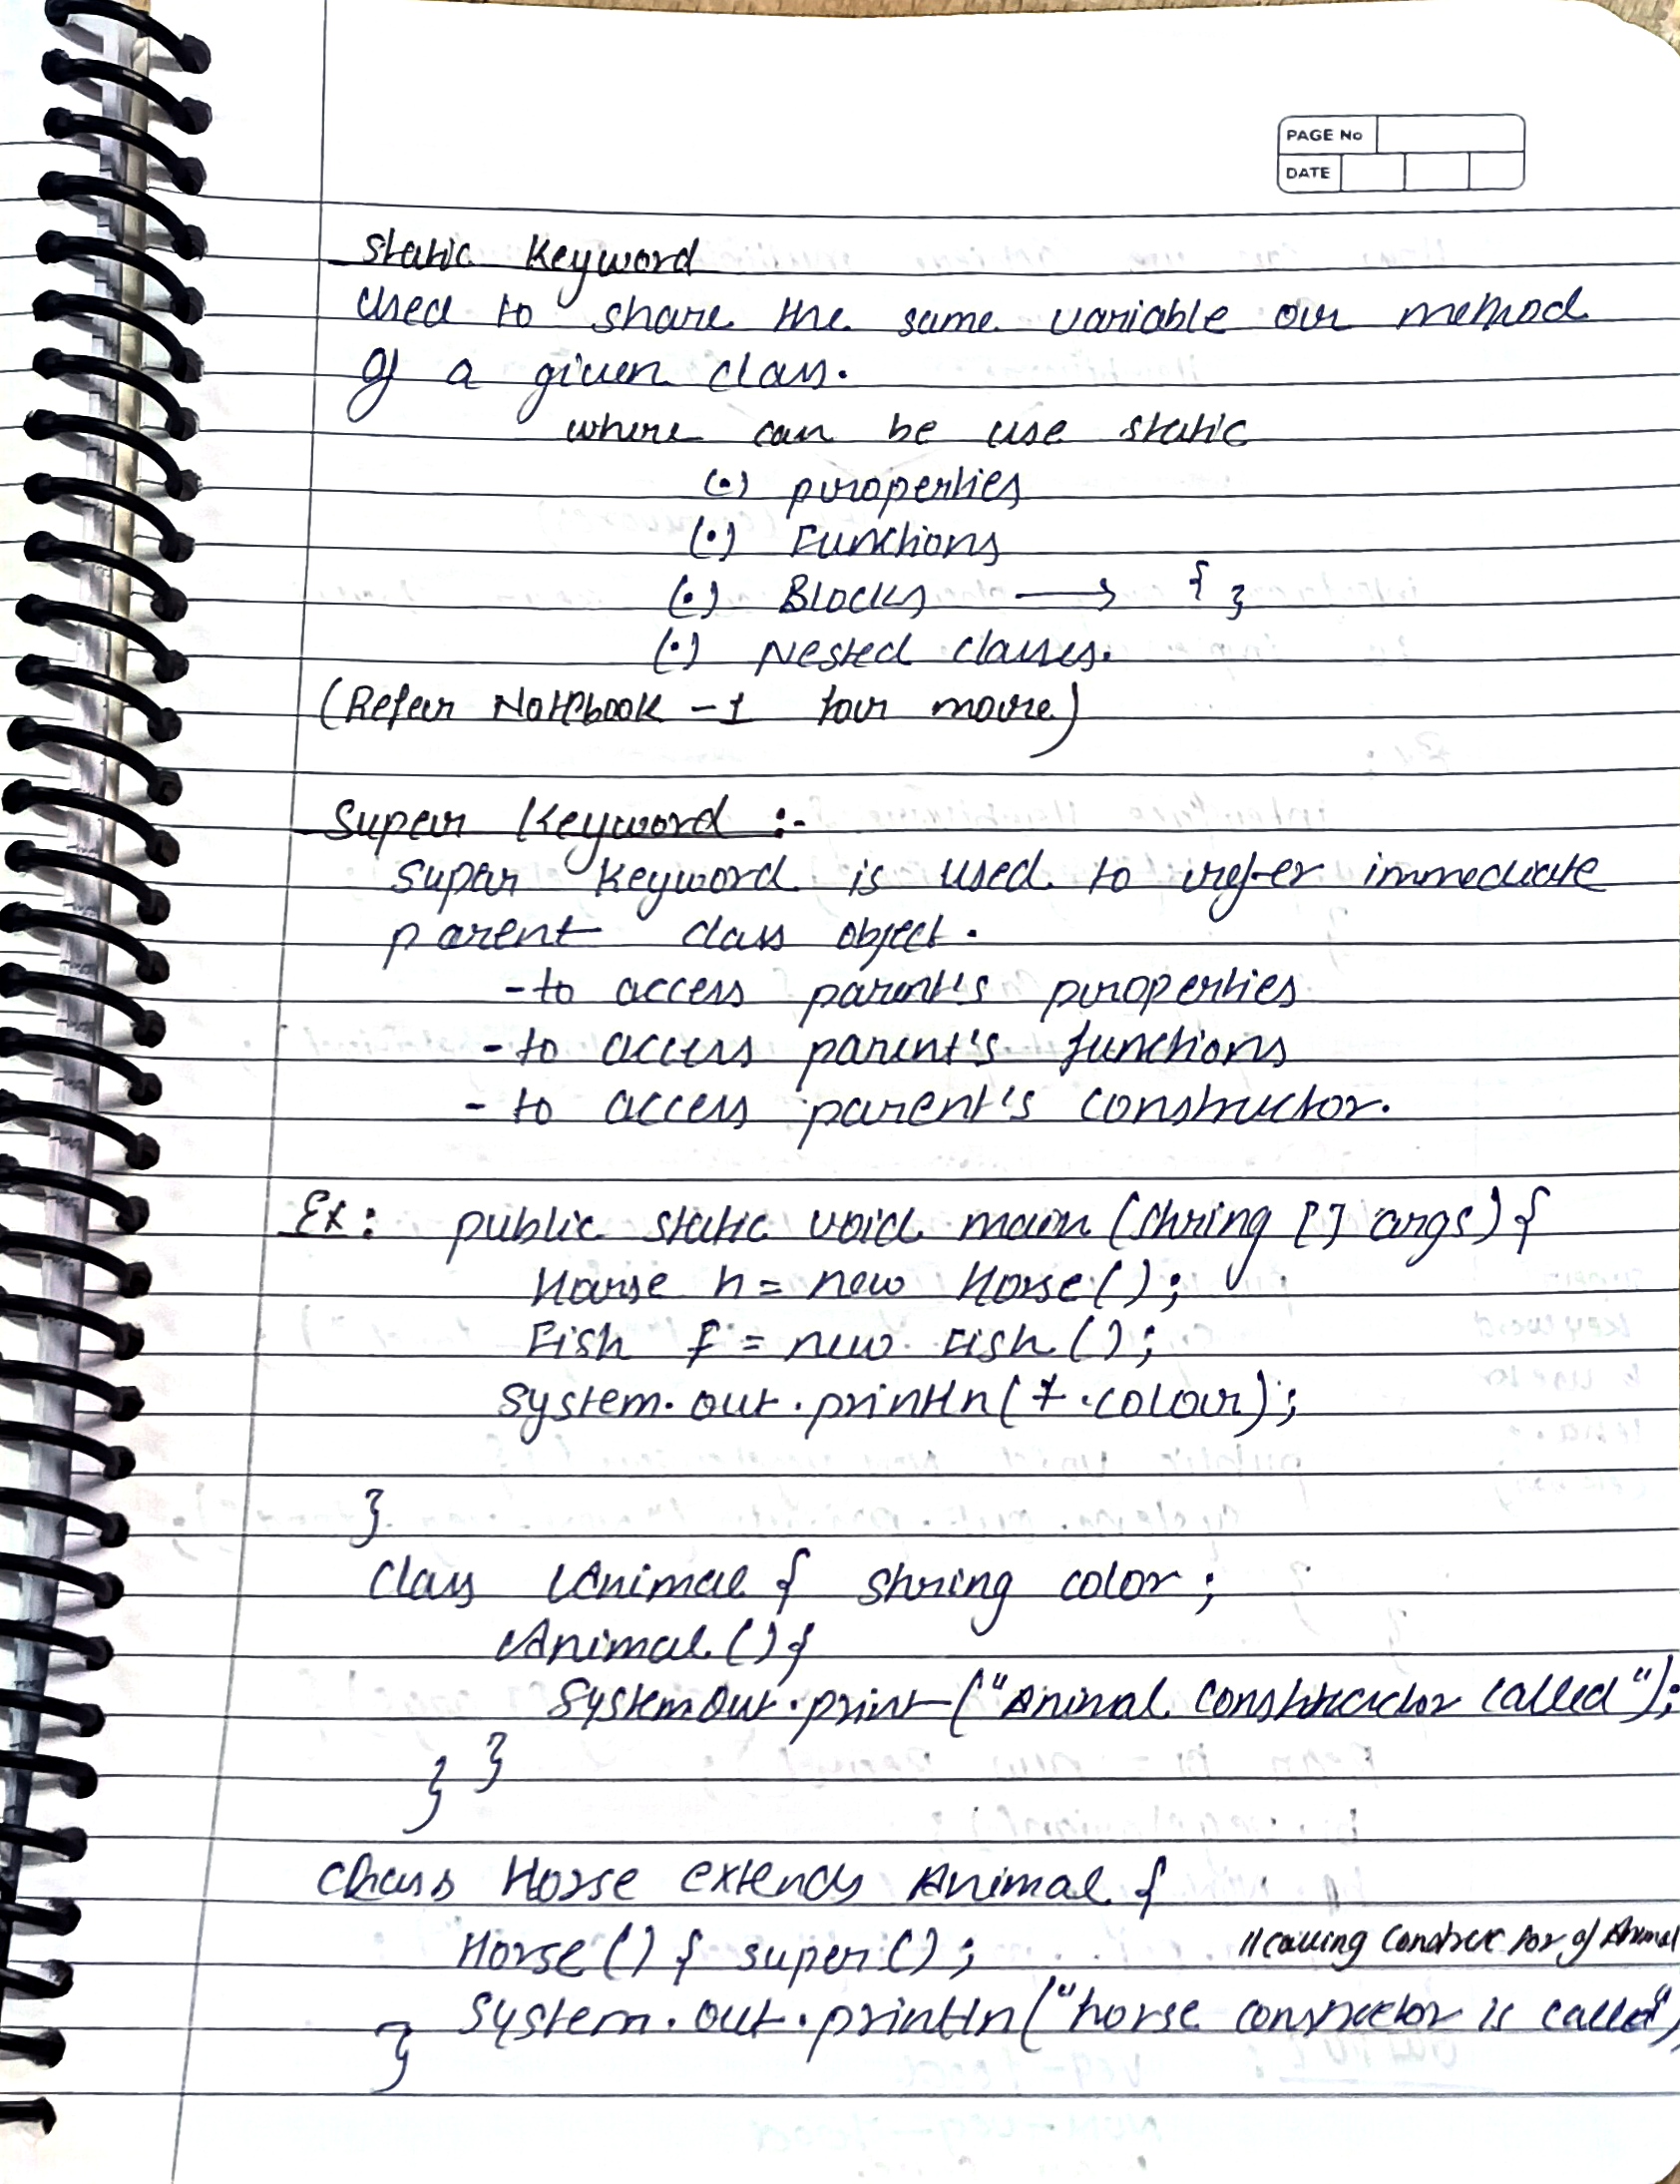 PAGE No
DATE
Static Keyword
Used to share the same variable or method
of a given class.
where can be use static
(•) properties
(•) Functions
(•) Blocks ⟶ { }
(•) Nested classes.
(Refer Notebook -1 for more)
Super Keyword :-
Super Keyword is used to refer immediate
parent class object.
- to access parent's properties
- to access parent's functions
- to access parent's constructor.
Ex: public static void main (String [] args) {
Horse h = new Horse();
Fish f = new Fish();
System.out.println(f.colour);
}
Class Animal { String color;
Animal() {
System out.print("Animal constructor called");
} }
Class Horse extends Animal {
Horse() { super(); //calling constructor of Animal
System.out.println("horse constructor is called")
}